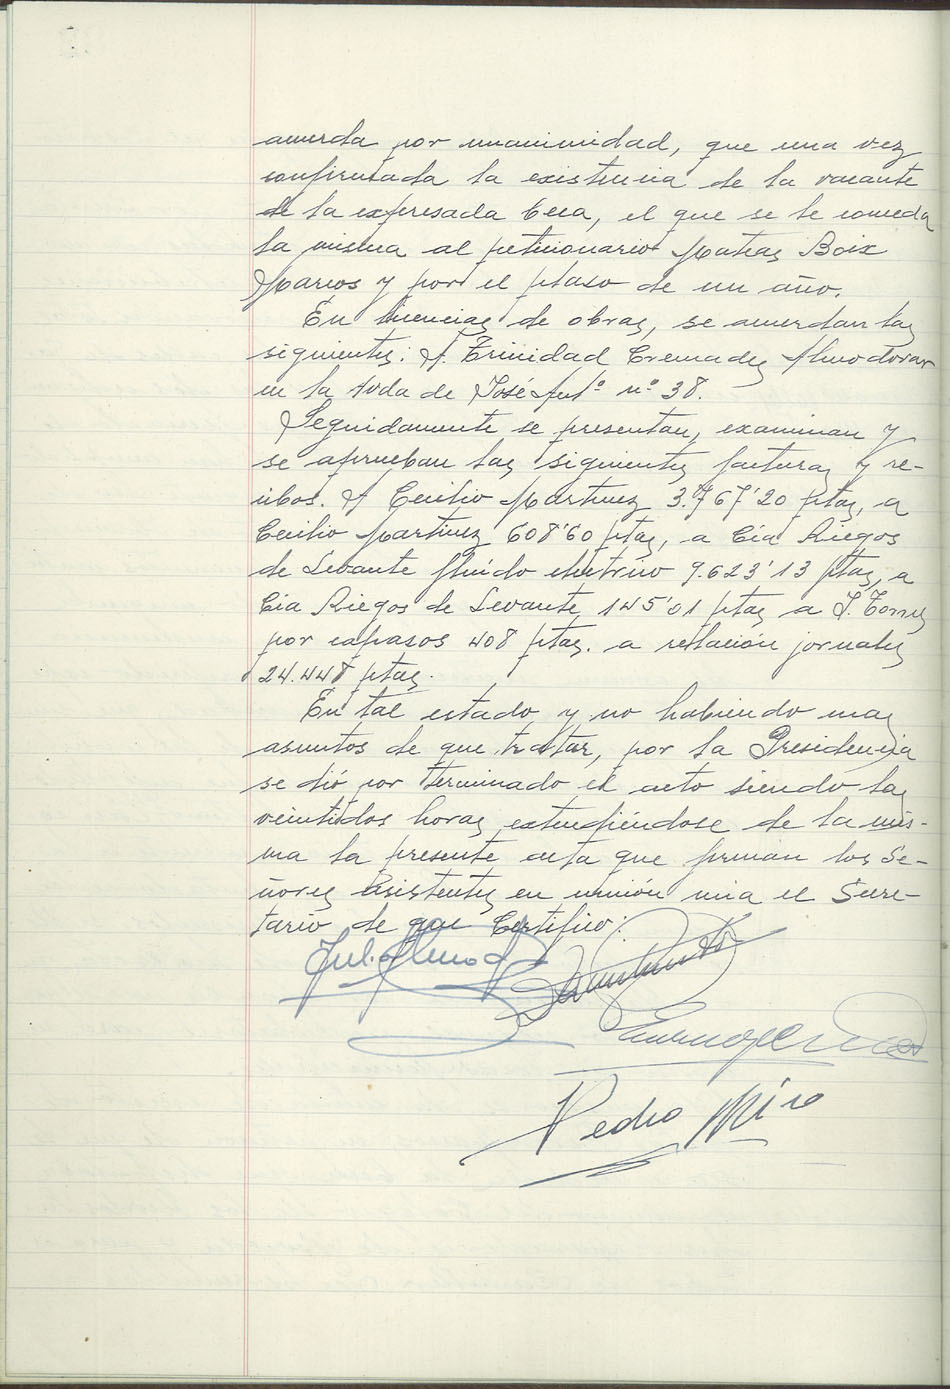 acuerda por unanimidad, que una vez
confirmada la existencia de la vacante
de la expresada beca, el que se le conceda
la misma al peticionario Matias Boix
Marcos y por el plaso de un año.
En licencias de obras, se acuerdan las
siguientes: A Trinidad Cremades Almodovar
en la Avda de José Antº nº 38.
Seguidamente se presentan, examinan y
se aprueban las siguientes facturas y re-
cibos. A Cecilio Martinez 3.767'20 ptas, a
Cecilio Martinez 608'60 ptas, a Cia Riegos
de Levante fluido electrico 9.623'13 ptas, a
Cia Riegos de Levante 145'01 ptas a J. Torres
por capasos 408 ptas. a rellación jornales
24.448 ptas.
En tal estado y no habiendo mas
asuntos de que tratar, por la Presidencia
se dió por terminado el acto siendo las
veintidos horas extendiéndose de la mis-
ma la presente acta que firman los Se-
ñores asistentes en unión mia el Secre-
tario de que Certifico:
Pedro Miro